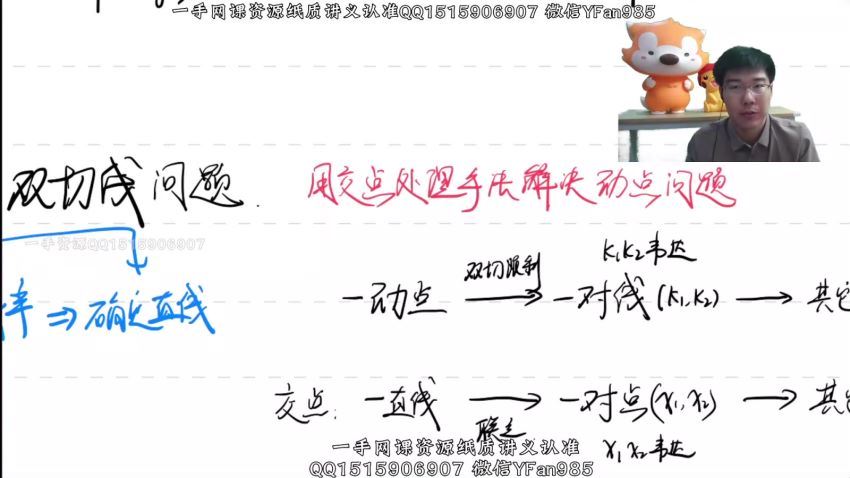 一手网课资源纸质讲义认准QQ1515906907 微信YFan985
双切线问题. 用交点处理手法解决动点问题
一手资源QQ1515906907
率 ⇒ 确定直线
k₁k₂韦达
一动点 双切限制 → 一对线(k₁,k₂) → 其它
交点: 一直线 联立 → 一对点(x₁,x₂) → 其它
x₁x₂韦达
一手网课资源纸质讲义认准
QQ1515906907 微信YFan985